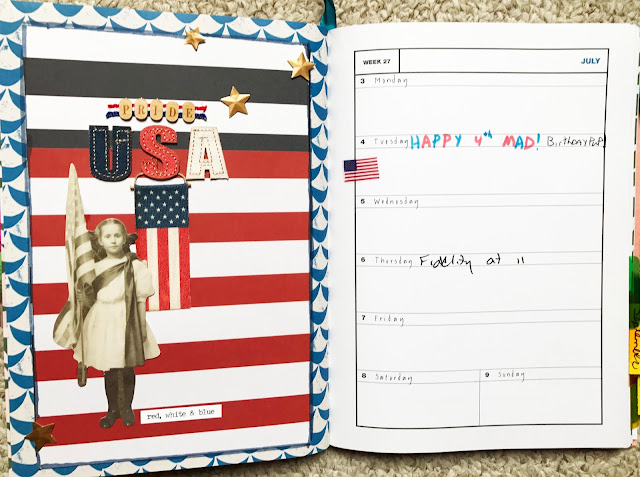 PRIDE
USA
red, white & blue
WEEK 27
JULY
3 Monday
4 Tuesday HAPPY 4th MAD! Birthday
5 Wednesday
6 Thursday Fidelity at 11
7 Friday
8 Saturday
9 Sunday